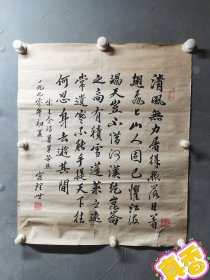 清風無力屠得熱落日著
翅飛上山人固已懼江海
竭天豈不惜河漢乾崑崙
之高有積雪蓬萊之遠
常遺寒不能手提天下往
何忍身去遊其間
宋王令詩暑旱苦熱
一九九〇年初夏
真